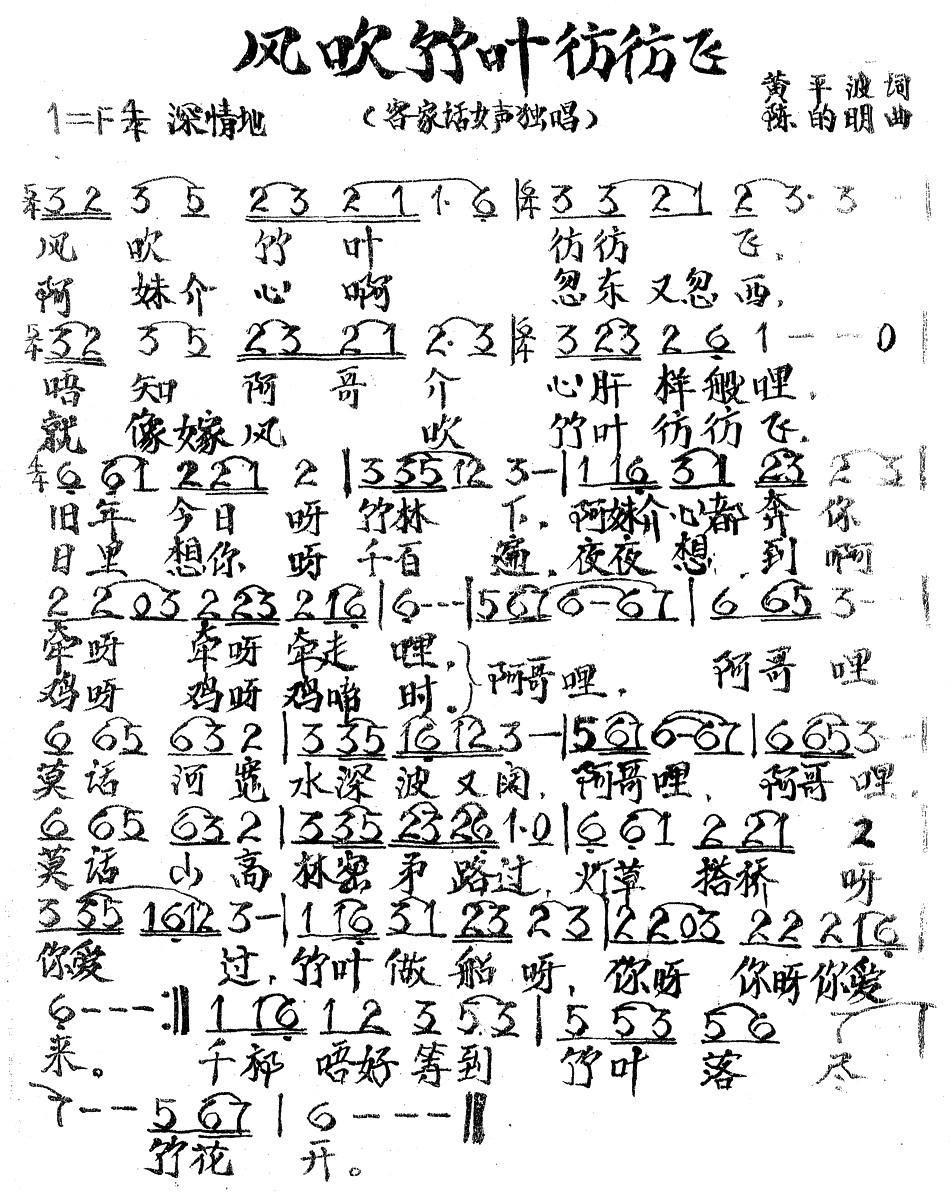 风吹竹叶彷彷飞
黄平波词
1=F 4/4 深情地
（客家话女声独唱）
陈的明曲
5/4 3 2 3 5 2 3 2 1 1· 6 | 5/4 3 3 2 1 2 3· 3
风 吹 竹 叶 彷彷 飞.
阿 妹介 心 啊 忽东又忽西.
5/4 3 2 3 5 2 3 2 1 2· 3 | 5/4 3 2 3 2 6 1 - - 0 |
唔 知 阿 哥 介 心肝样般哩.
就 像嫁风 吹 竹叶彷彷飞.
4/4 6 6 1 2 2 1 2 | 3 3 5 1 2 3 - | 1 1 6 3 1 2 3 2 3 |
旧年 今日 呀 竹林 下. 阿妹介心都奔 你
日里 想你 呀 千百 遍. 夜夜想 到 啊
2 2 0 3 2 2 3 2 1 6 | 6 - - - | 5 6 7 6 - 6 7 | 6 6 5 3 - -
牵呀 牵呀牵走 哩. 阿哥哩. 阿哥 哩
鸡呀 鸡呀鸡啼 时.
6 6 5 6 3 2 | 3 3 5 1 6 1 2 3 - | 5 6 7 6 - 6 7 | 6 6 5 3 - -
莫话 河宽 水深波又阔. 阿哥哩. 阿哥 哩.
6 6 5 6 3 2 | 3 3 5 2 3 2 6 1· 0 | 6 6 1 2 2 1 2
莫话 山高 林密矛路过. 灯草 搭桥 呀
3 3 5 1 6 1 2 3 - | 1 1 6 3 1 2 3 2 3 | 2 2 0 3 2 2 2 1 6 |
你爱 过. 竹叶做船呀. 你呀 你呀你爱
6 - - - :‖ 1 1 6 1 2 3 5 3 | 5 5 3 5 6 7
来。 千祈 唔好等到 竹叶 落 尽
7 - - 5 6 7 | 6 - - - ‖
竹花 开。